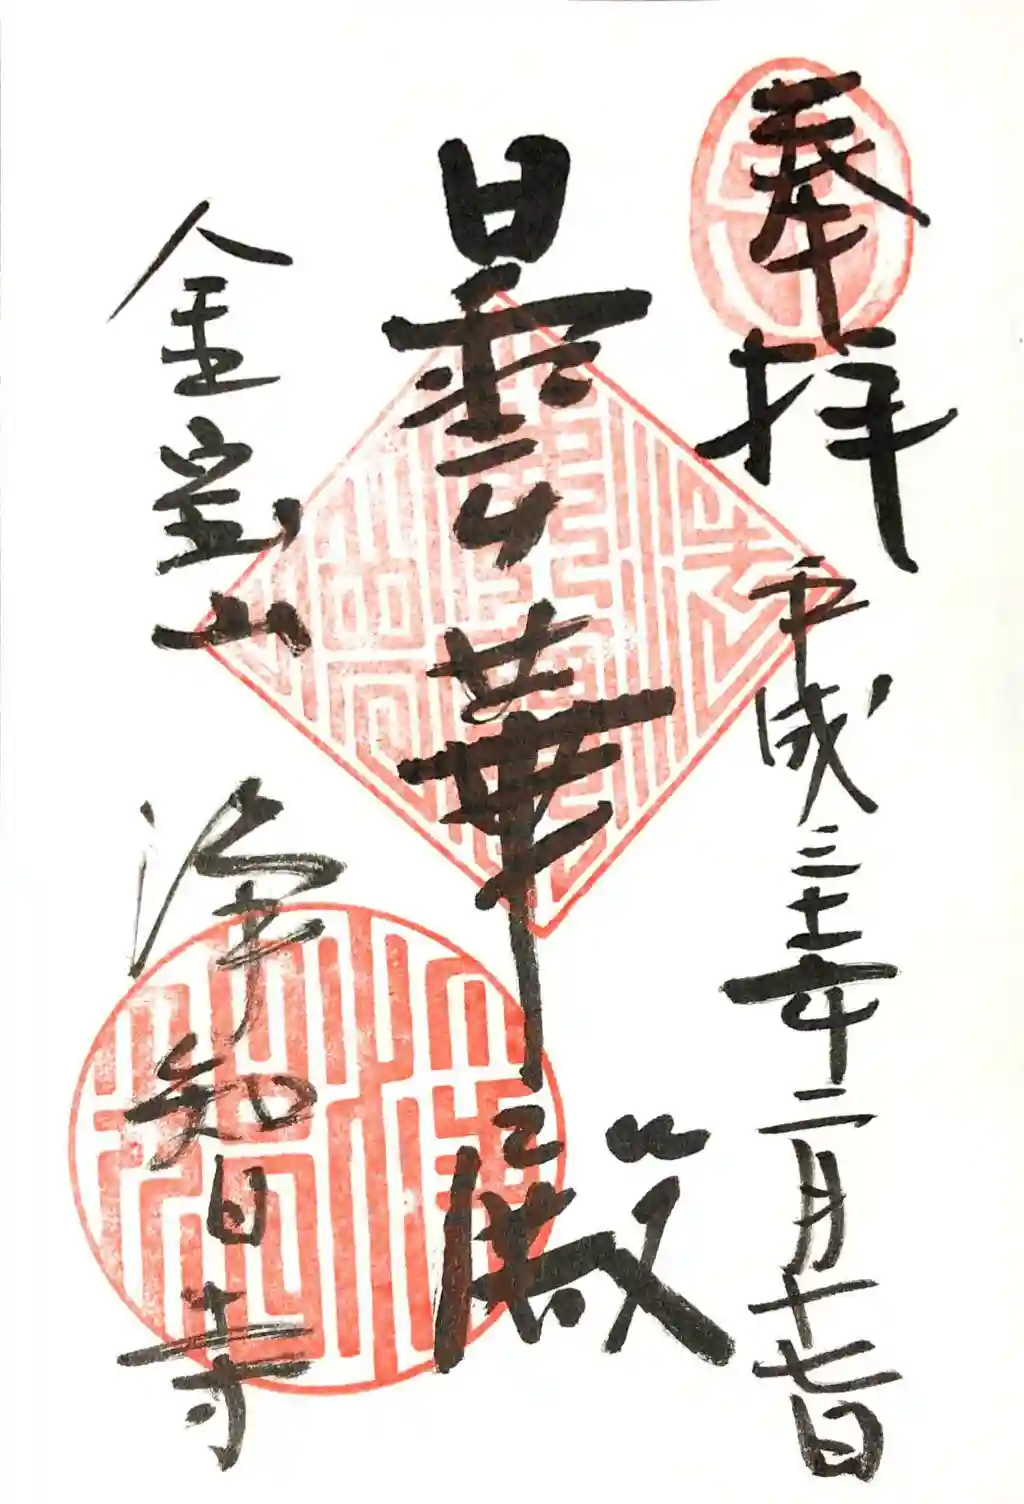 奉拝
平成三十一年二月十七日
曇華殿
金宝山
浄智寺